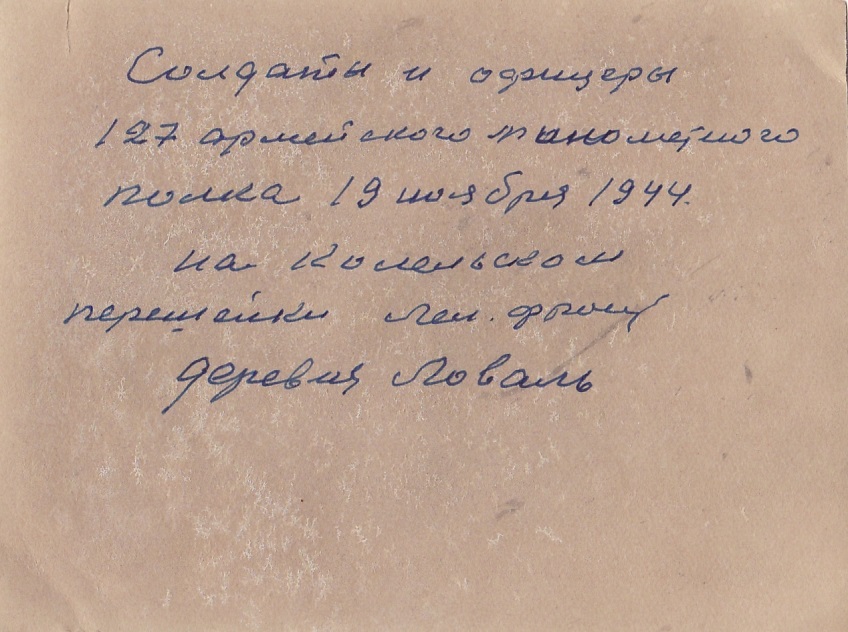 Солдаты и офицеры
127 армейского минометного
полка 19 ноября 1944.
на Колельском
перешейки Лен. фронт
деревня Ловаль